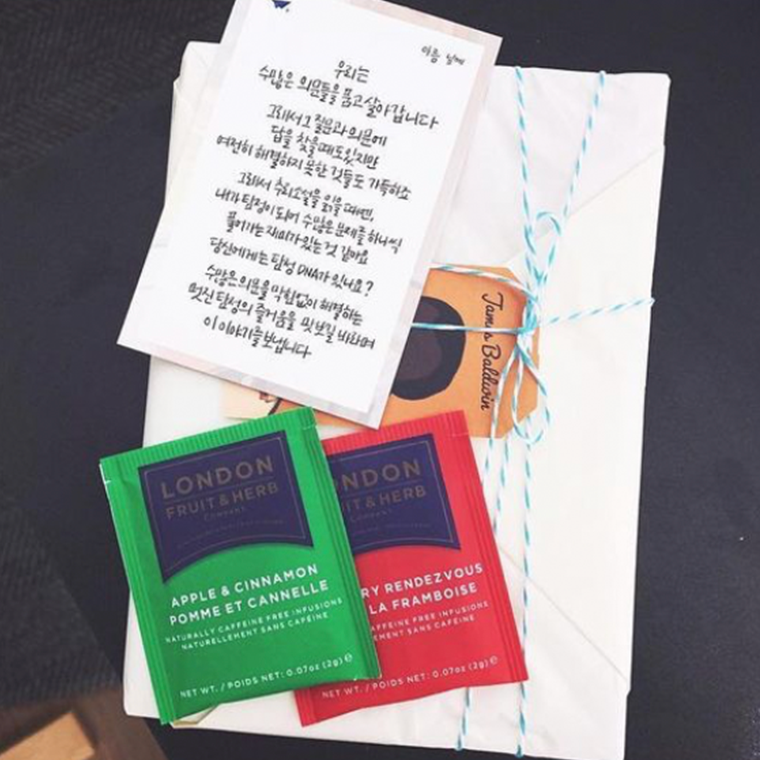 아름 님께
우리는
수많은 의문들을 품고 살아갑니다
그래서 그 질문과 의문에
답을 찾을 때도 있지만
여전히 해결하지 못한 것들도 가득하죠
그래서 추리소설을 읽을 때면,
내가 탐정이 되어 수많은 문제를 하나씩
풀어가는 재미가 있는 것 같아요
당신에게는 탐정 DNA가 있나요?
수많은 의문을 막힘없이 해결하는
멋진 탐정의 즐거움을 맛보길 바라며
이 이야기를 보냅니다.
James Baldwin
LONDON
FRUIT & HERB
COMPANY
APPLE & CINNAMON
POMME ET CANNELLE
NATURALLY CAFFEINE FREE INFUSIONS
NATURELLEMENT SANS CAFÉINE
NET WT. / POIDS NET: 0.07oz (2g) e
NDON
FRUIT & HERB
RY RENDEZVOUS
LA FRAMBOISE
CAFFEINE FREE INFUSIONS
EMENT SANS CAFÉINE
NET WT. / POIDS NET: 0.07oz (2g) e